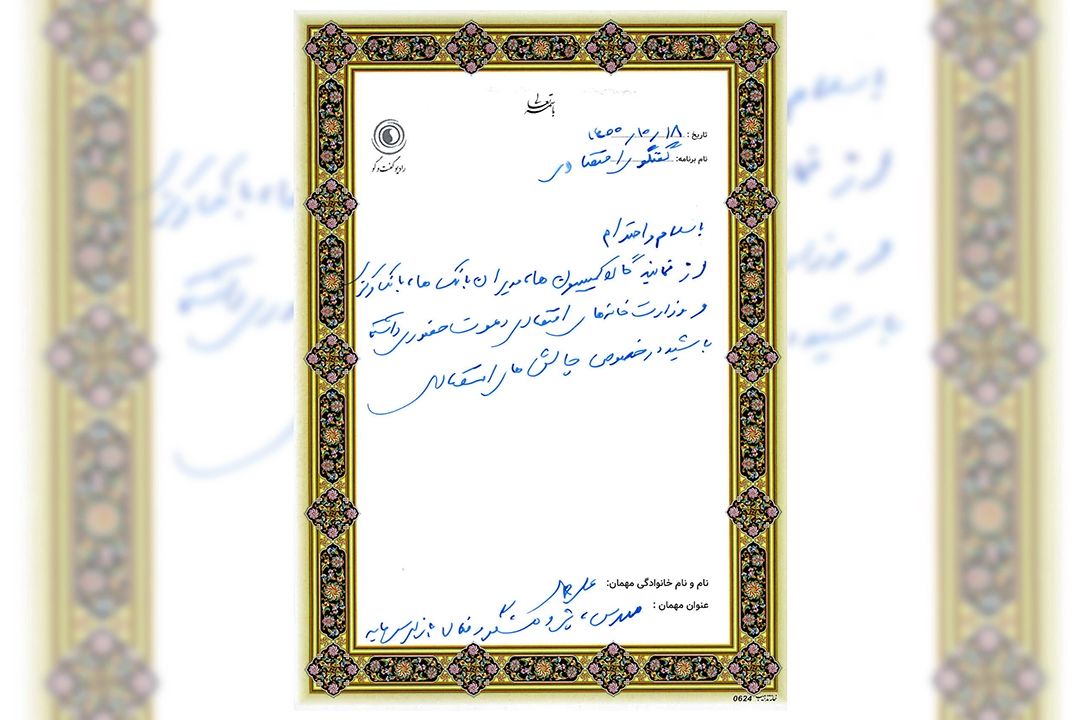 باسمه تعالی
رادیو گفت‌و‌گو
تاریخ: ۱۴۰۰/۱۰/۱۸
نام برنامه: گفتگوی اقتصادی
با سلام و احترام
از نمایندگان کمیسیون ها، مدیران بانک ها، بانک مرکزی
و وزارت خانه‌های اقتصادی دعوت حضوری داشته
باشید در خصوص چالش های اقتصادی
نام و نام خانوادگی مهمان: علی
عنوان مهمان: مدرس، پژوهشگر و فعال بازار سرمایه
0624